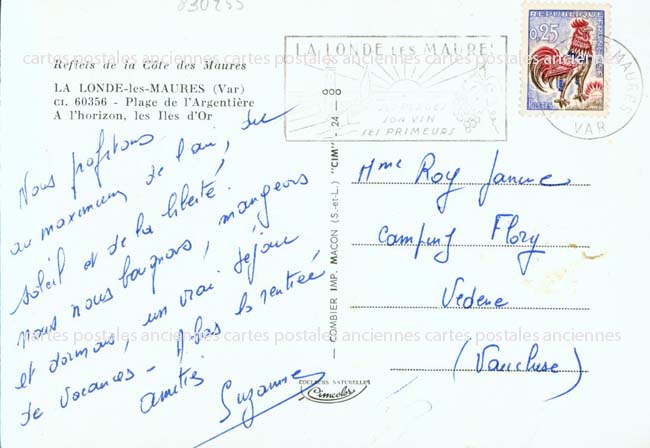 830255
Reflets de la Côte des Maures
LA LONDE-les-MAURES (Var)
CI. 60356 - Plage de l'Argentière
A l'horizon, les Iles d'Or
Nous profitons
au maximum de l'air, du
soleil et de la liberté.
Nous nous baignons, mangeons
et dormons, un vrai séjour
de vacances - A bas la rentrée
amitiés
Suzanne
COMBIER IMP. MACON (S.-et-L.) "CIM" - 24 - 88
COULEURS NATURELLES
Cimcolor
LA LONDE LES MAURES
SON VIN
SES PRIMEURS
REPUBLIQUE FRANCAISE
0,25
POSTES
MAURES
VAR
Mme Roy Janine
Camping Flory
Vedene
(Vaucluse)
cartes postales anciennes cartes postales anciennes cartes postales anciennes
cartes postales anciennes cartes postales anciennes cartes postales anciennes